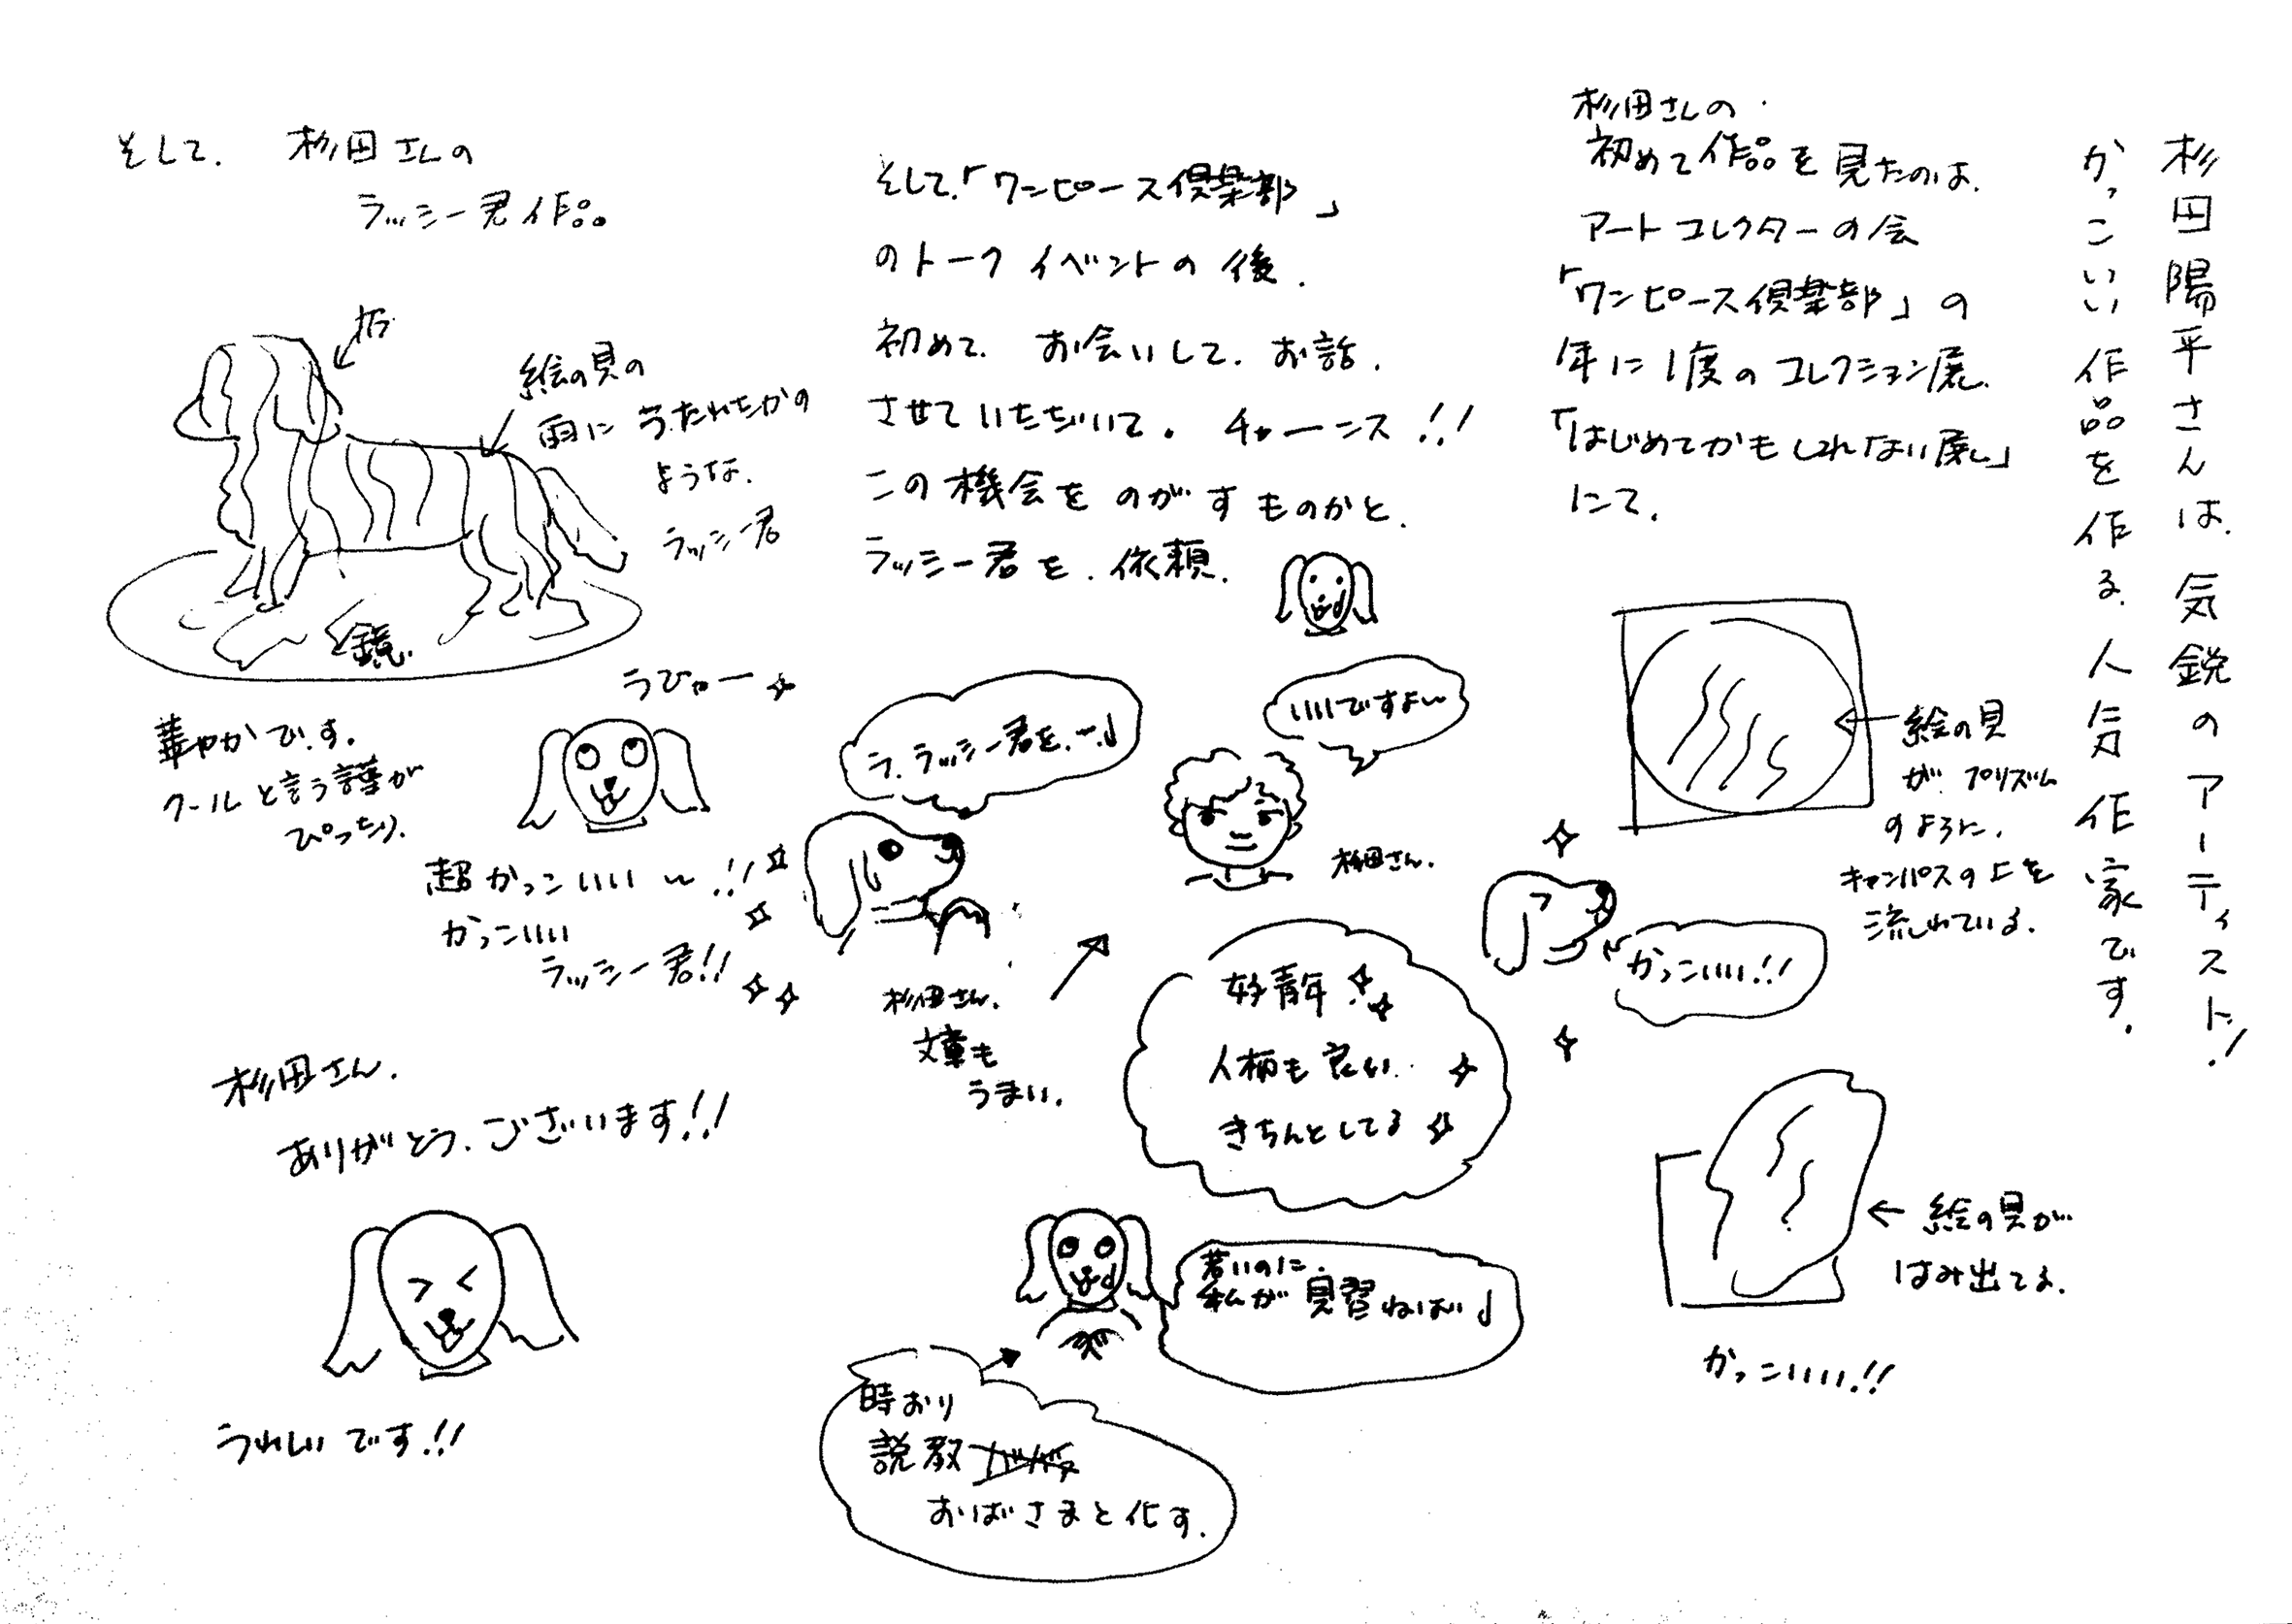 杉田陽平さんは、気鋭のアーティスト!
かっこいい作品を作る、人気作家です。
杉田さんの
初めて作品を見たのは、
アートコレクターの会
「ワンピース倶楽部」の
年に1度のコレクション展、
「はじめてかもしれない展」
にて。
絵の具
が、プリズム
のように、
キャンパスの上を
流れている。
かっこいい!!
絵の具が
はみ出てる。
かっこいい!!
そして、「ワンピース倶楽部」
のトークイベントの後、
初めて、お会いして、お話、
させていただいて。チャーンス!!
この機会をのがすものかと、
ラッシー君を、依頼、
ラ、ラッシー君を、…♩
いいですよ〜
杉田さん、
杉田さん、
文章も
うまい、
好青年!
人柄も良い
きちんとしてる
若いのに、
私が見習わねば♩
時おり
説教
おばさまと化す。
そして、杉田さんの
ラッシー君作品。
絵の具の
雨にうたれたかの
ような、
ラッシー君
鏡、
うひゃー
華やかです。
クールと言う言葉が
ぴったり、
超かっこいい〜!!
かっこいい
ラッシー君!!
杉田さん、
ありがとう、ございます!!
うれしいです!!